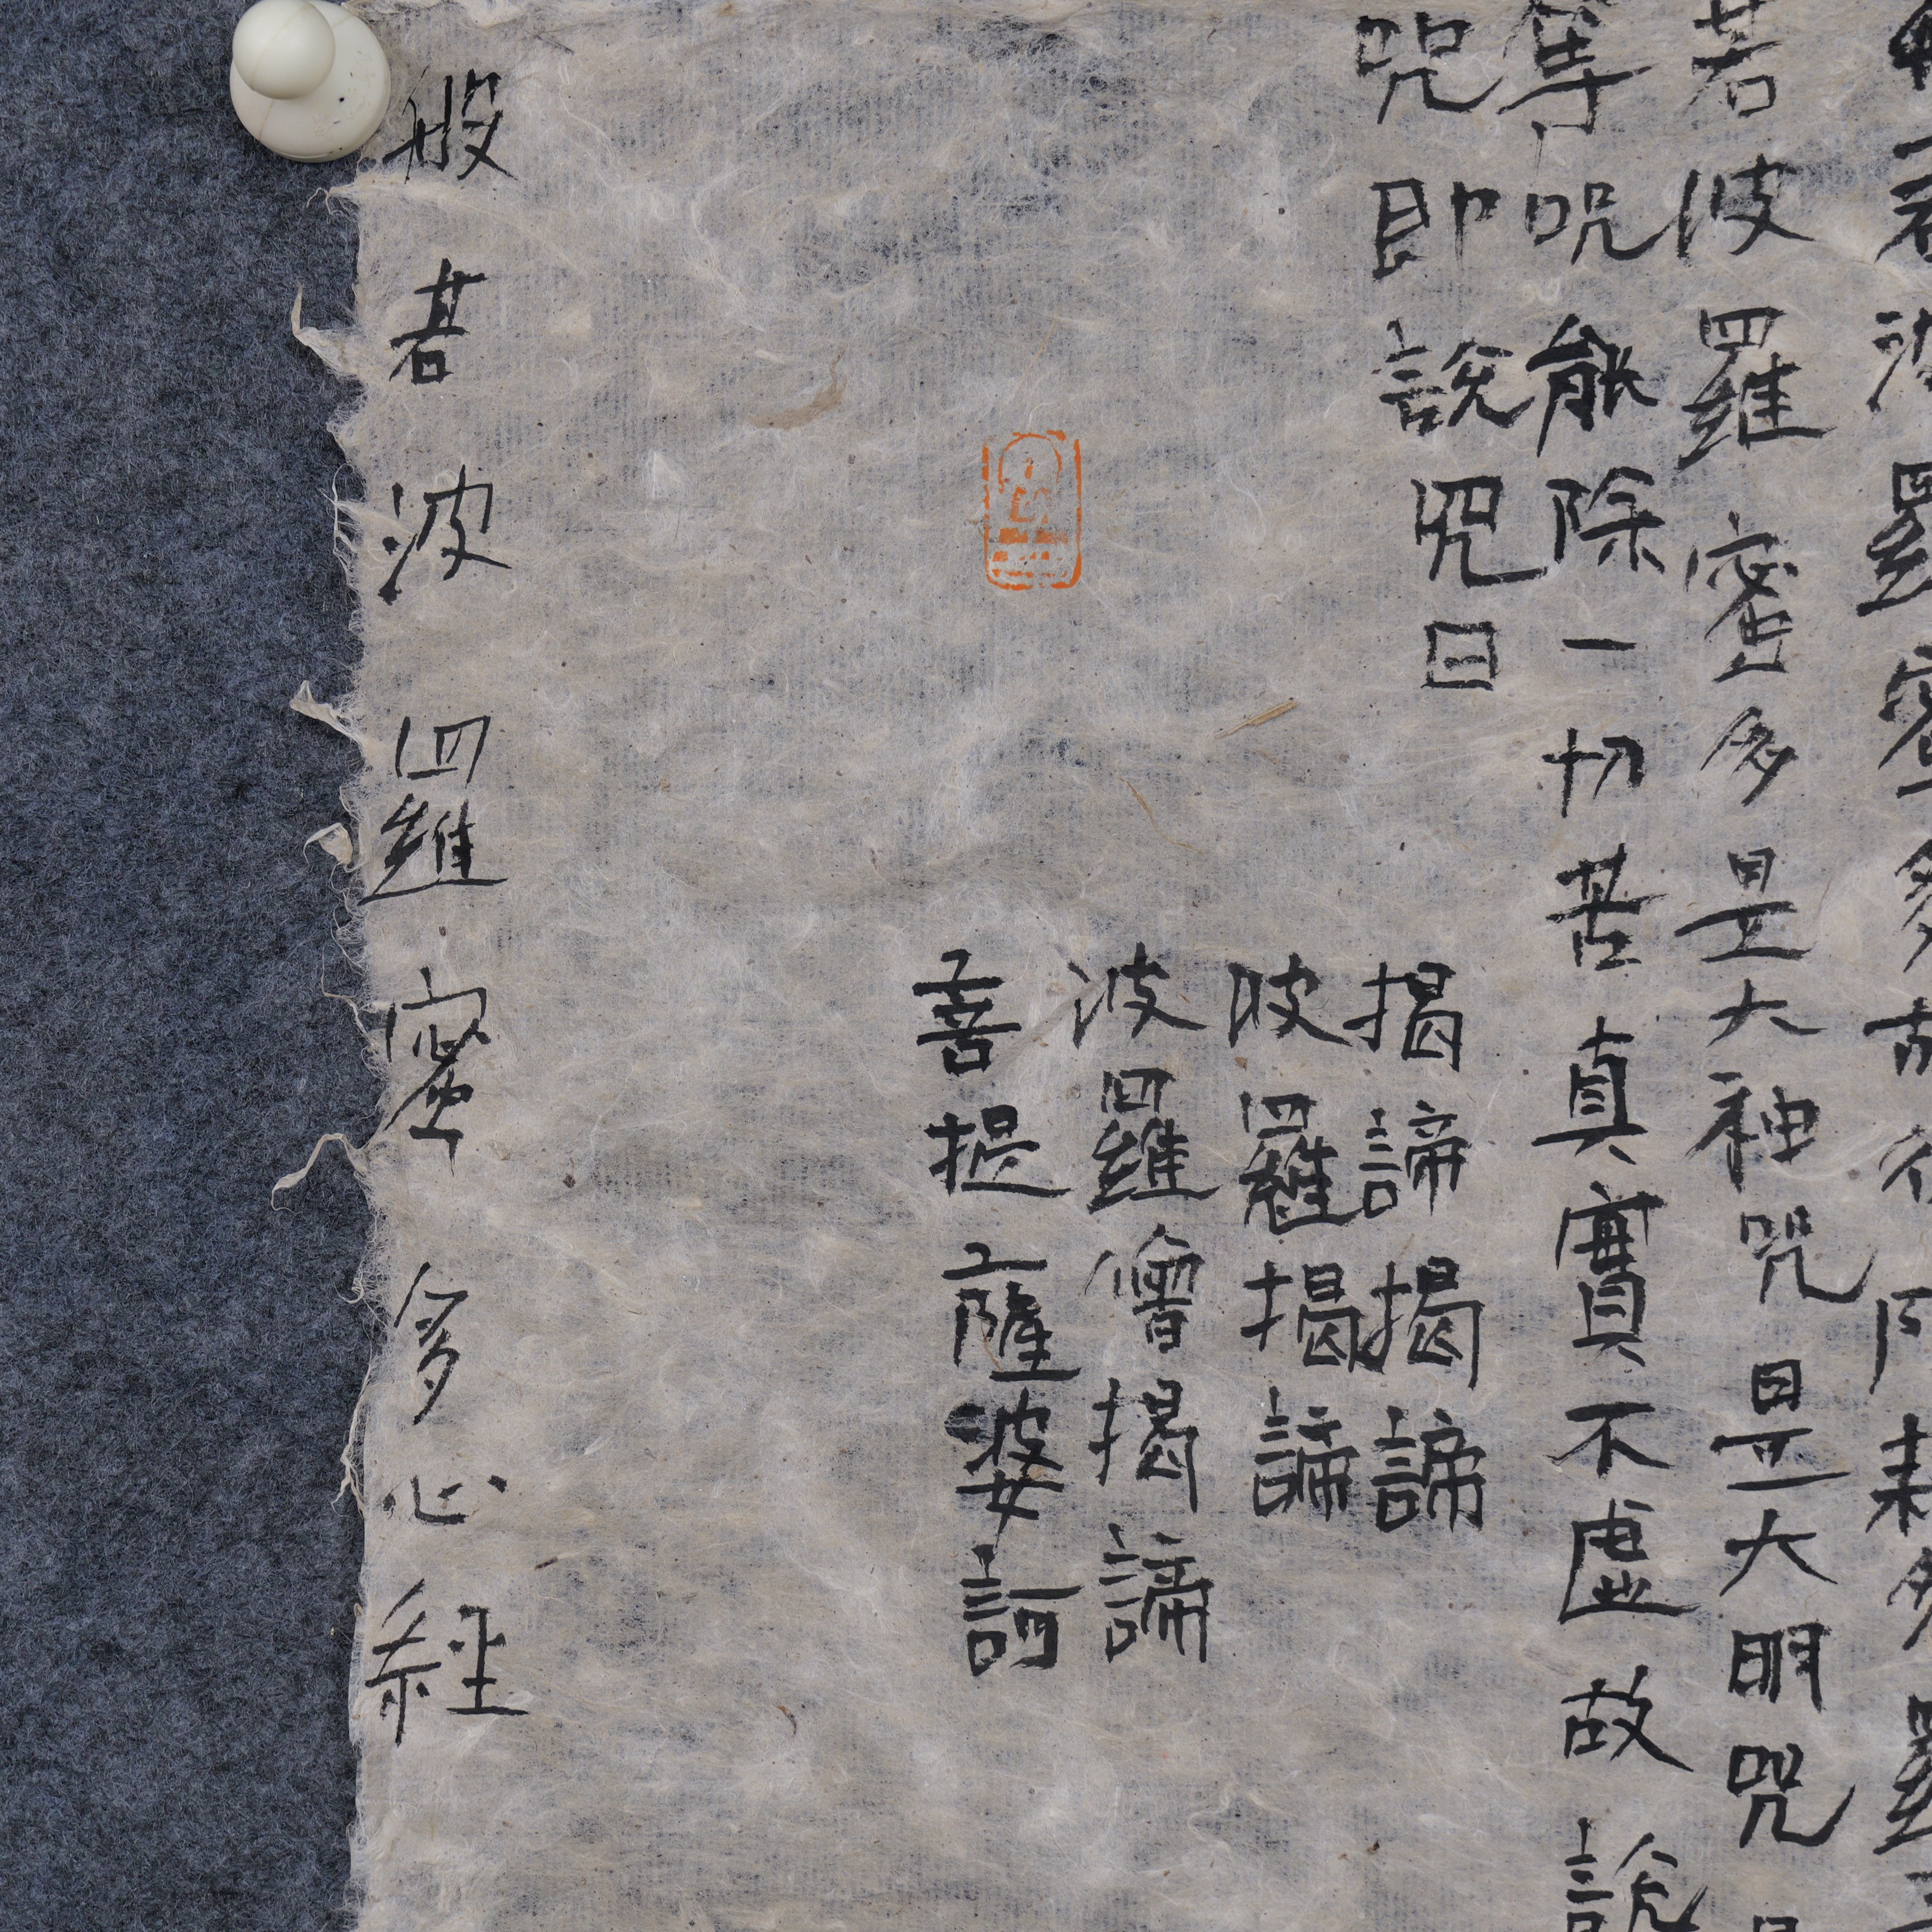 若波羅蜜多故得阿耨多羅
若波羅蜜多是大神咒是大明咒是
等咒能除一切苦真實不虛故說
咒即說咒曰
揭諦揭諦
波羅揭諦
波羅僧揭諦
菩提薩婆訶
般若波羅蜜多心經